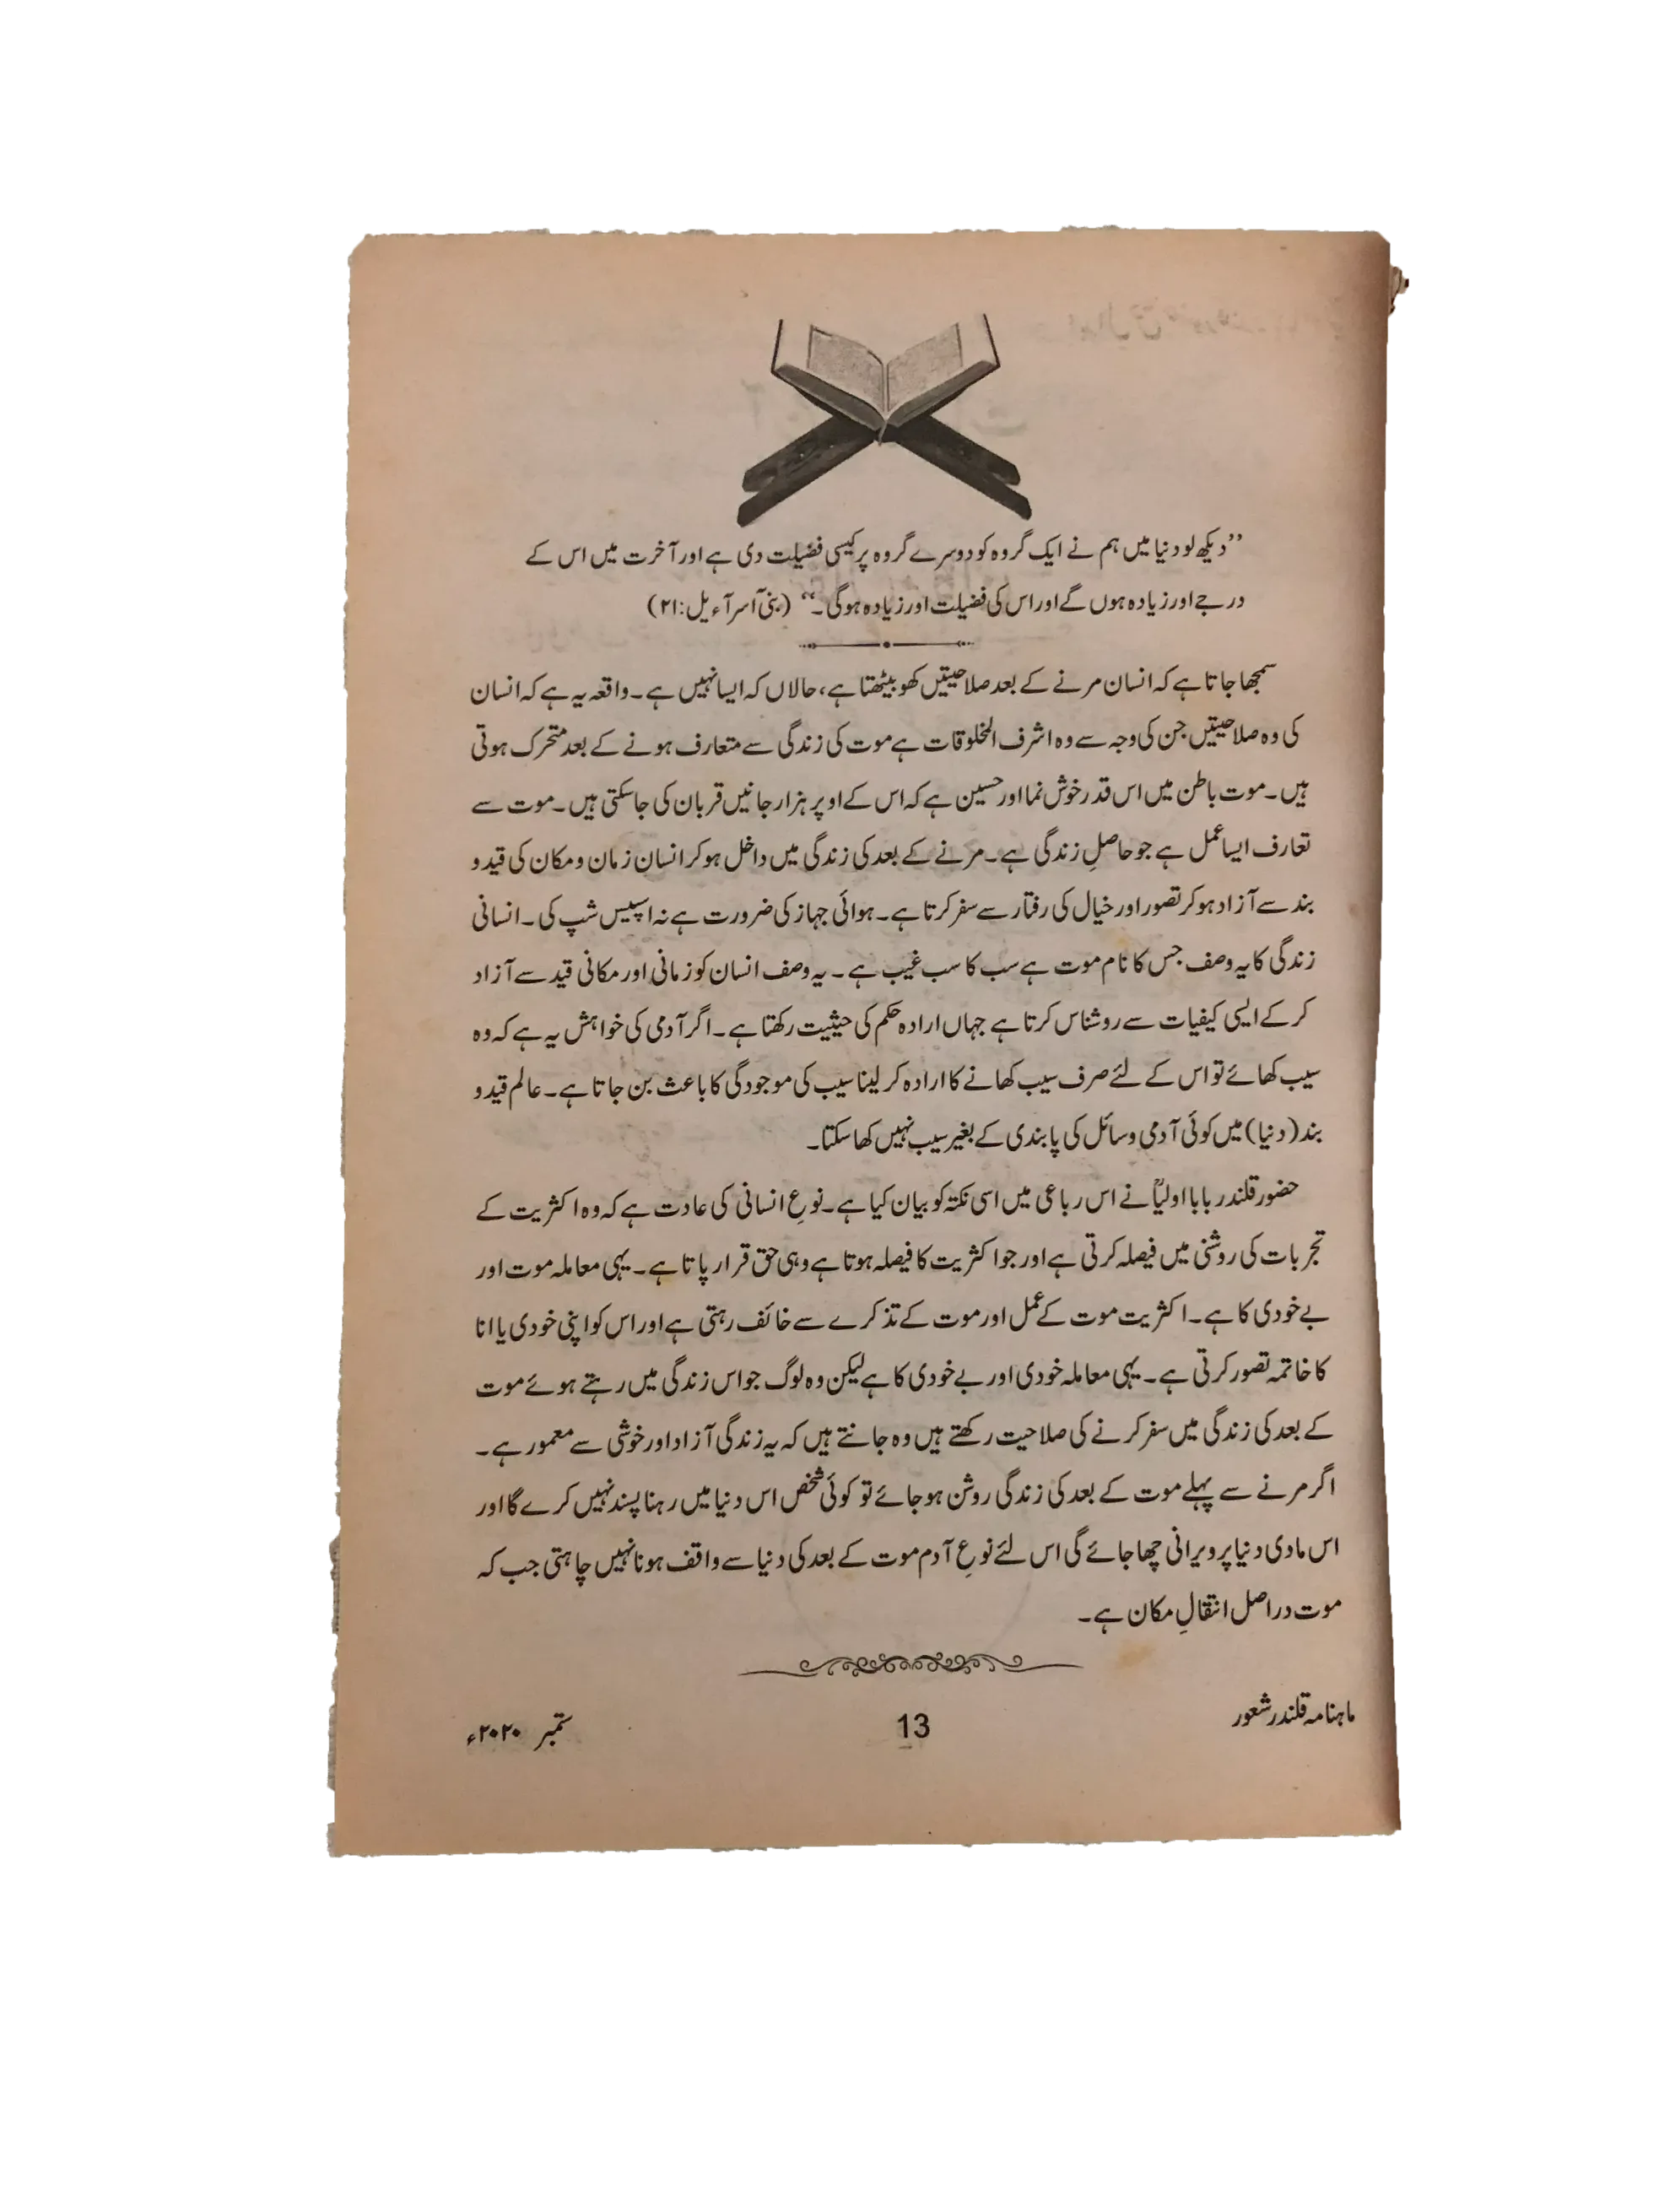 ’’دیکھ لو دنیا میں ہم نے ایک گروہ کو دوسرے گروہ پر کیسی فضیلت دی ہے اور آخرت میں اس کے
درجے اور زیادہ ہوں گے اور اس کی فضیلت اور زیادہ ہوگی۔‘‘ (بنیٓ اسرآءیل:۲۱)
سمجھا جاتا ہے کہ انسان مرنے کے بعد صلاحیتیں کھو بیٹھتا ہے، حالاں کہ ایسا نہیں ہے۔ واقعہ یہ ہے کہ انسان
کی وہ صلاحیتیں جن کی وجہ سے وہ اشرف المخلوقات ہے موت کی زندگی سے متعارف ہونے کے بعد متحرک ہوتی
ہیں۔ موت باطن میں اس قدر خوش نما اور حسین ہے کہ اس کے اوپر ہزار جانیں قربان کی جاسکتی ہیں۔ موت سے
تعارف ایسا عمل ہے جو حاصلِ زندگی ہے۔ مرنے کے بعد کی زندگی میں داخل ہو کر انسان زمان و مکان کی قید و
بند سے آزاد ہو کر تصور اور خیال کی رفتار سے سفر کرتا ہے۔ ہوائی جہاز کی ضرورت ہے نہ اسپیس شپ کی۔ انسانی
زندگی کا یہ وصف جس کا نام موت ہے سب کا سب غیب ہے۔ یہ وصف انسان کو زمانی اور مکانی قید سے آزاد
کر کے ایسی کیفیات سے روشناس کرتا ہے جہاں ارادہ حکم کی حیثیت رکھتا ہے۔ اگر آدمی کی خواہش یہ ہے کہ وہ
سیب کھائے تو اس کے لئے صرف سیب کھانے کا ارادہ کر لینا سیب کی موجودگی کا باعث بن جاتا ہے۔ عالم قید و
بند (دنیا) میں کوئی آدمی وسائل کی پابندی کے بغیر سیب نہیں کھا سکتا۔
حضور قلندر بابا اولیاؒ نے اس رباعی میں اسی نکتہ کو بیان کیا ہے۔ نوعِ انسانی کی عادت ہے کہ وہ اکثریت کے
تجربات کی روشنی میں فیصلہ کرتی ہے اور جو اکثریت کا فیصلہ ہوتا ہے وہی حق قرار پاتا ہے۔ یہی معاملہ موت اور
بے خودی کا ہے۔ اکثریت موت کے عمل اور موت کے تذکرے سے خائف رہتی ہے اور اس کو اپنی خودی یا انا
کا خاتمہ تصور کرتی ہے۔ یہی معاملہ خودی اور بے خودی کا ہے لیکن وہ لوگ جو اس زندگی میں رہتے ہوئے موت
کے بعد کی زندگی میں سفر کرنے کی صلاحیت رکھتے ہیں وہ جانتے ہیں کہ یہ زندگی آزاد اور خوشی سے معمور ہے۔
اگر مرنے سے پہلے موت کے بعد کی زندگی روشن ہو جائے تو کوئی شخص اس دنیا میں رہنا پسند نہیں کرے گا اور
اس مادی دنیا پر ویرانی چھا جائے گی اس لئے نوعِ آدم موت کے بعد کی دنیا سے واقف ہونا نہیں چاہتی جب کہ
موت دراصل انتقالِ مکان ہے۔
ماہنامہ قلندر شعور 13 ستمبر ۲۰۲۰ء